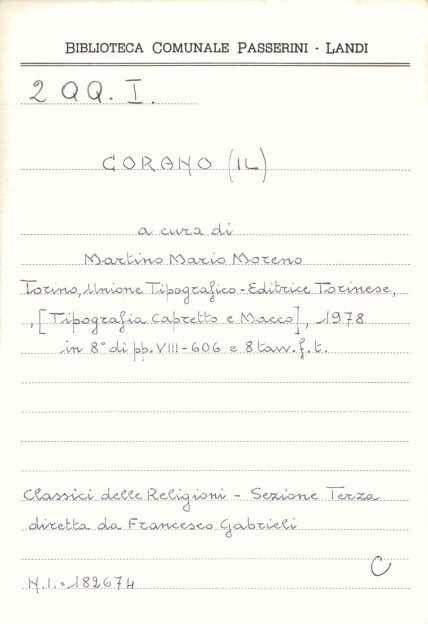 BIBLIOTECA COMUNALE PASSERINI - LANDI
2 QQ. I.
CORANO (IL)
a cura di
Martino Mario Moreno
Torino, Unione Tipografico-Editrice Torinese,
, [Tipografia Capretto e Macco], 1978
in 8° di pp. VIII-606 e 8 tavv. f. t.
Classici delle Religioni - Sezione Terza
diretta da Francesco Gabrieli
C
N.I. = 182674